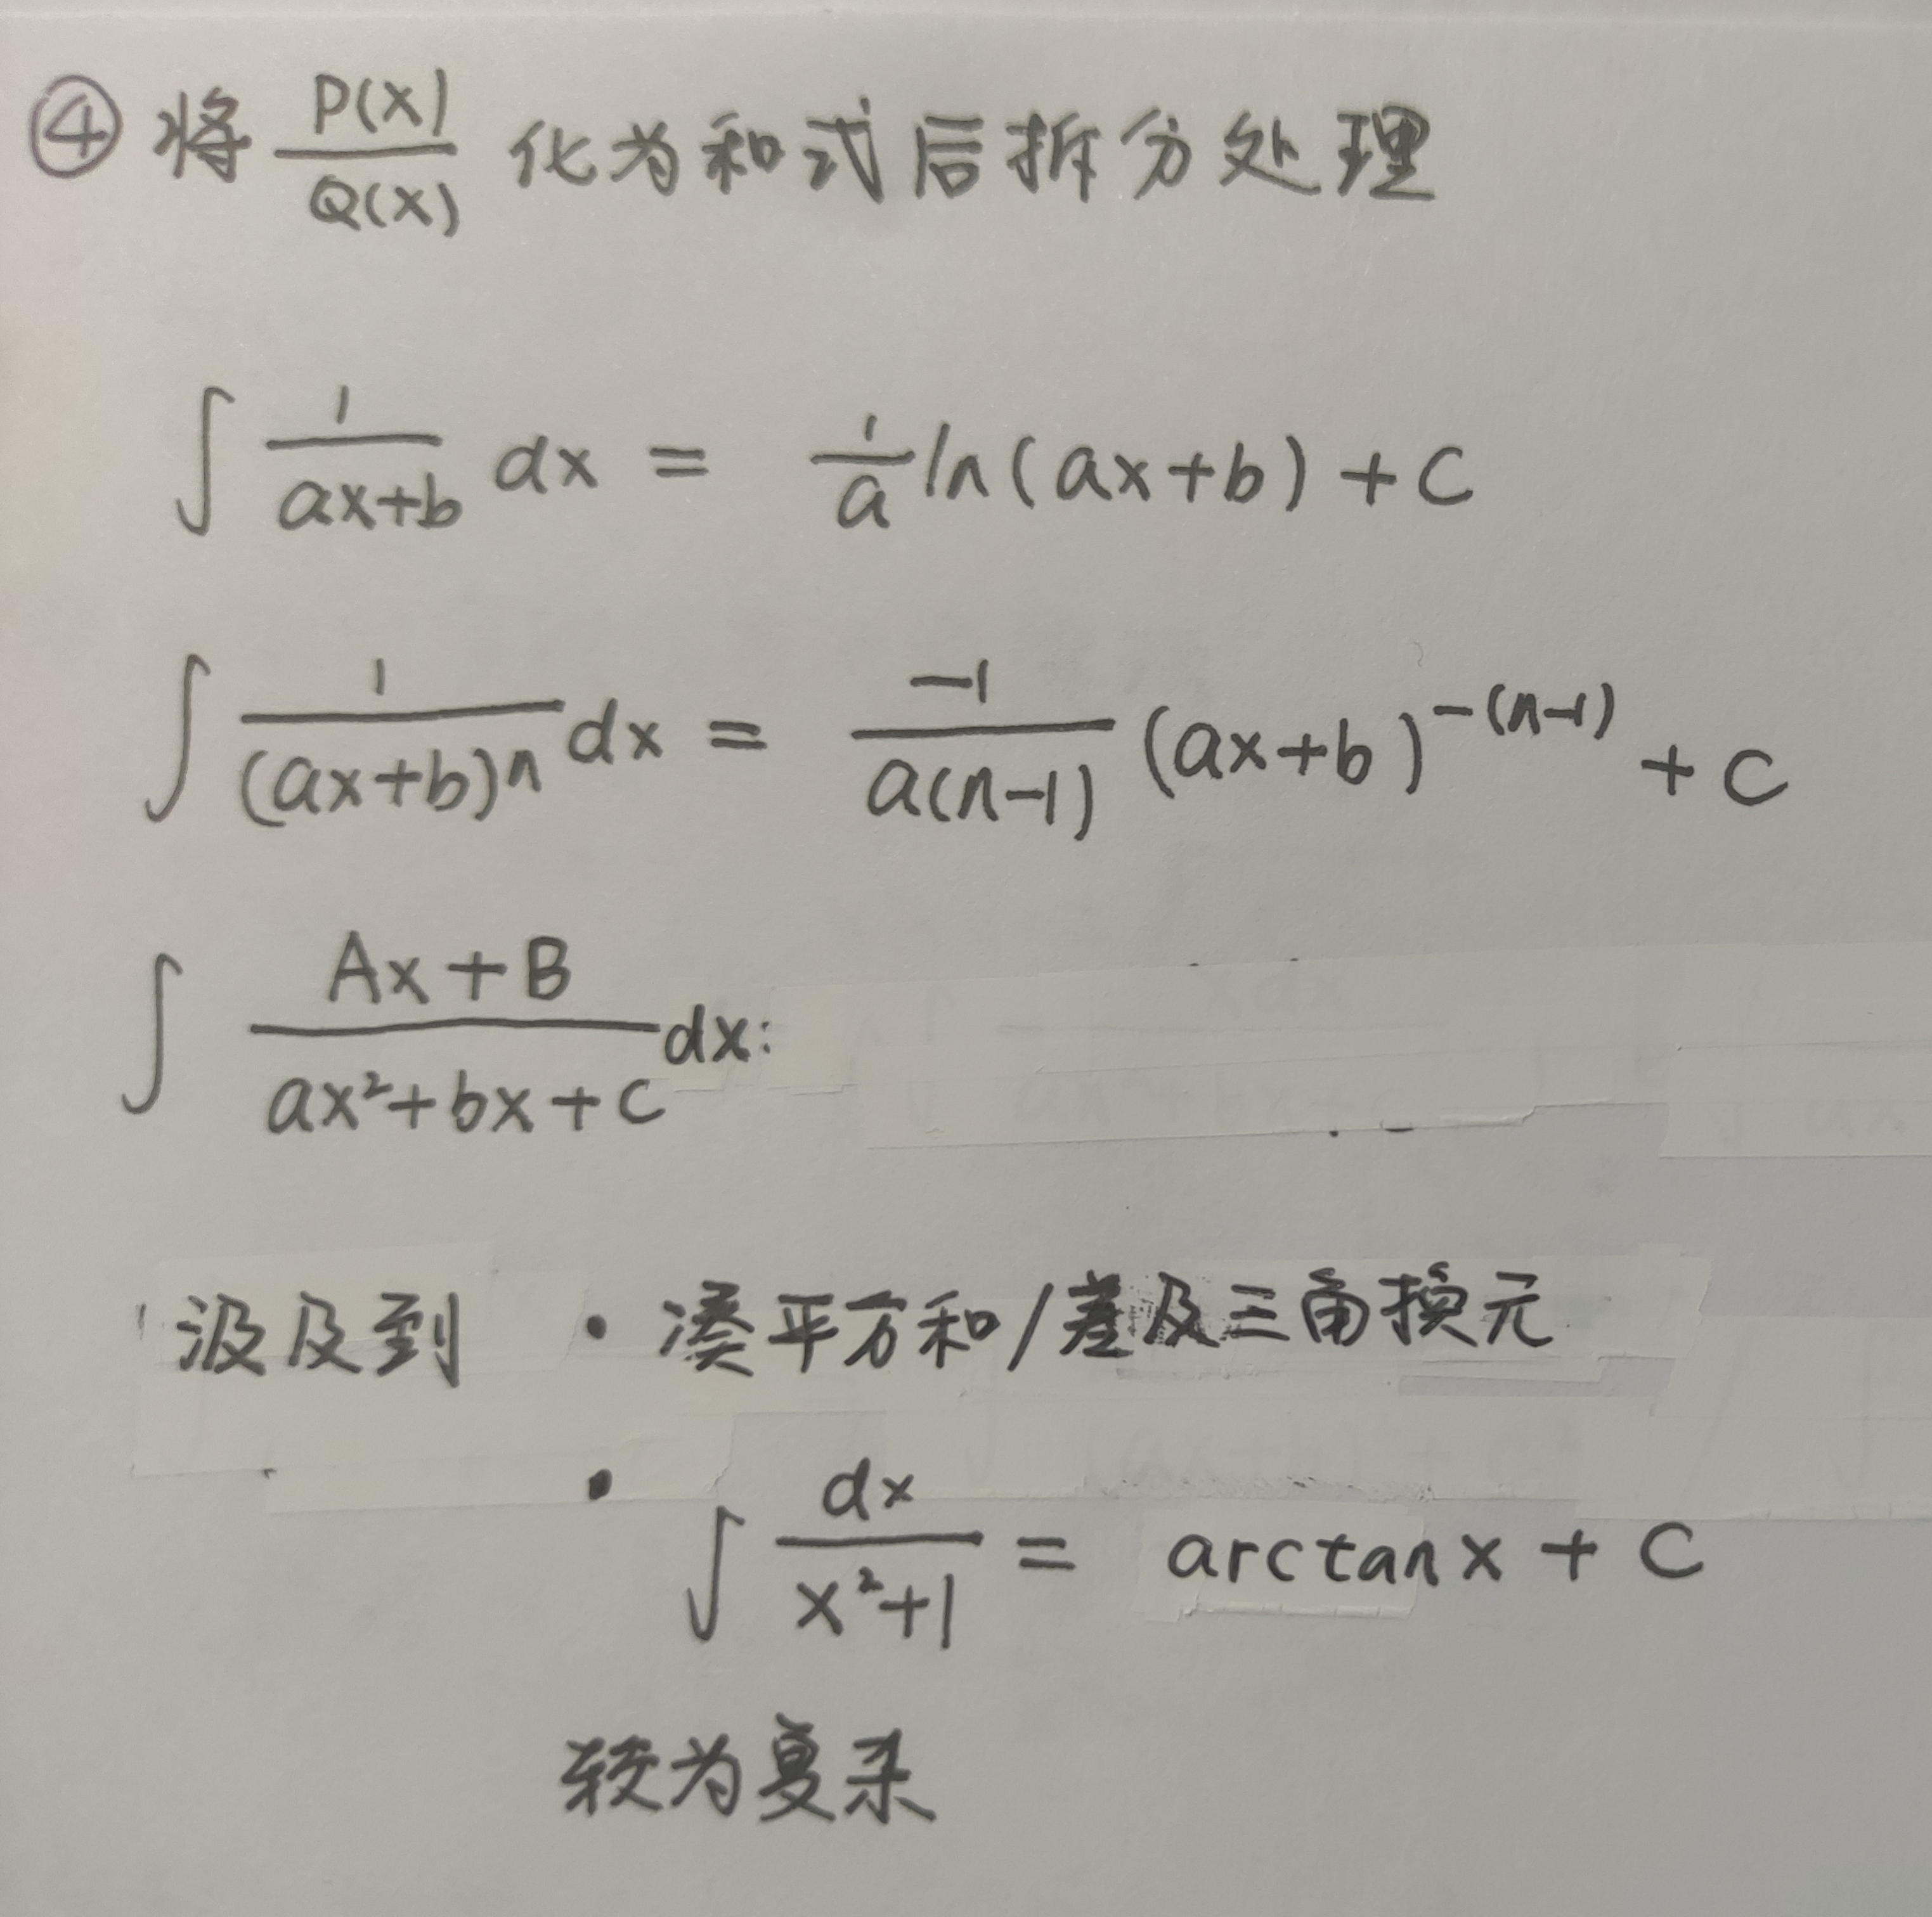 ④ 将 P(x)/Q(x) 化为和式后拆分处理
∫ 1/(ax+b) dx = 1/a ln(ax+b) + C
∫ 1/(ax+b)ⁿ dx = -1/(a(n-1)) (ax+b)^(-(n-1)) + C
∫ (Ax+B)/(ax²+bx+c) dx:
汲及到 · 凑平方和/差及三角换元
· ∫ dx/(x²+1) = arctanx + C
较为复杂